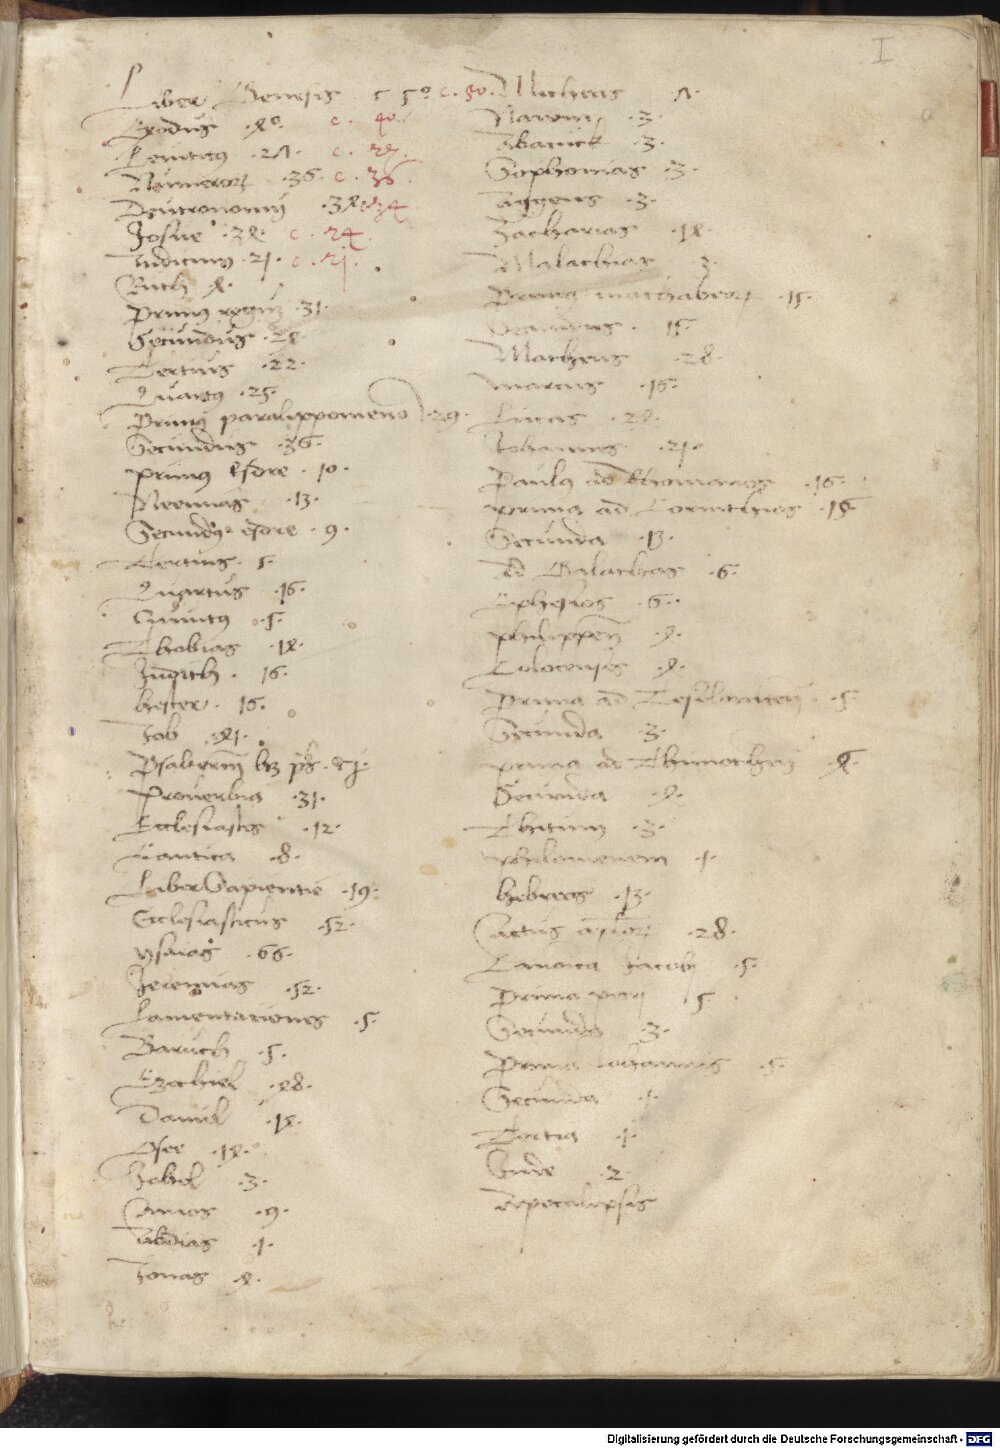 I
Liber Genesis c 50 c. 50.
Exodus 40 c. 40
Leviticus 27 c. 27.
Numerorum 36 c. 36
Deutronomii 34 c 34
Josue 24 c. 24
Judicum 21. c. 21.
Ruth 4.
Primus regum 31.
Secundus 24
Tertius 22.
Quartus 25.
Primus paralippomenon 29.
Secundus 36.
primus Esdre 10.
Neemias 13.
Secundus esdre 9.
Tertius 5.
Quartus 16.
Quintus 5.
Thobias 14.
Judith 16.
hester 16.
Job 41.
Psalterium
Proverbia 31.
Ecclesiastes 12.
Cantica 8.
Liber Sapientie 19.
Ecclesiasticus 52.
ysaias 66.
Jeremias 52.
Lamentationes 5.
Baruch 5.
Ezechiel 48.
Daniel 14.
Osee 14.
Johel 3.
Amos 9.
Abdias 1.
Jonas 4.
Micheas 7.
Naum 3.
Abacuck 3.
Sophonias 3.
Aggeus 3.
Zacharias 14.
Malachias 3
Primus machabeorum 15.
Secundus 15.
Matheus 28.
marcus 16.
Lucas 24.
Johannes 21.
Paulus ad Rhomanos 16.
prima ad Corinthios 16
Secunda 13.
Ad Galathas 6.
Ephesios 6.
philippen 4.
Colocenses 4.
Prima ad Tessalonicen 5
Secunda 3.
prima ad Thimotheum 6.
Secunda 4.
Thitum 3.
philomenem 1.
hebreos 13.
Actus apostolorum 28.
Canonica Jacobi 5.
Prima petri 5
Secunda 3.
Prima Johannis 5.
Secunda 1.
Tertia 1.
Jude 2
Appocalipsis
Digitalisierung gefördert durch die Deutsche Forschungsgemeinschaft - DFG